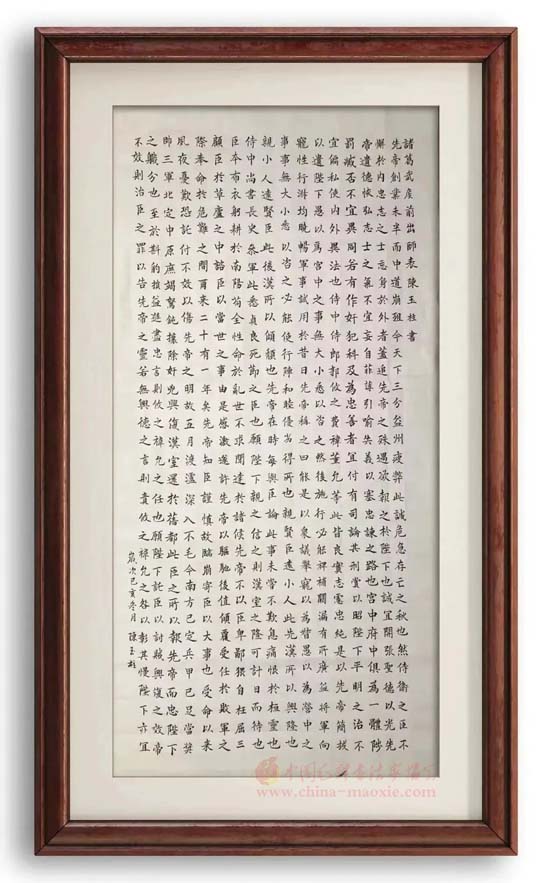 諸葛武矦前出師表陳玉柱書
先帝創業未半而中道崩殂今天下三分益州疲弊此誠危急存亡之秋也然侍衛之臣不
懈於內忠志之士忘身於外者蓋追先帝之殊遇欲報之於陛下也誠宜開張聖德以光先
帝遺德恢弘志士之氣不宜妄自菲薄引喻失義以塞忠諫之路也宮中府中俱為一體陟
罰臧否不宜異同若有作奸犯科及為忠善者宜付有司論其刑賞以昭陛下平明之治不
宜偏私使內外異法也侍中侍郎郭攸之費禕董允等此皆良實志慮忠純是以先帝簡拔
以遺陛下愚以為宮中之事無大小悉以咨之然後施行必能裨補闕漏有所廣益將軍向
寵性行淑均曉暢軍事試用於昔日先帝稱之曰能是以衆議舉寵以為督愚以為營中之
事事無大小悉以咨之必能使行陣和睦優劣得所也親賢臣遠小人此先漢所以興隆也
親小人遠賢臣此後漢所以傾頹也先帝在時每與臣論此事未嘗不歎息痛恨於桓靈也
侍中尚書長史參軍此悉貞良死節之臣也願陛下親之信之則漢室之隆可計日而待也
臣本布衣躬耕於南陽苟全性命於亂世不求聞達於諸侯先帝不以臣卑鄙猥自枉屈三
顧臣於草廬之中諮臣以當世之事由是感激遂許先帝以驅馳後值傾覆受任於敗軍之
際奉命於危難之間爾來二十有一年矣先帝知臣謹慎故臨崩寄臣以大事也受命以來
夙夜憂歎恐託付不效以傷先帝之明故五月渡瀘深入不毛今南方已定兵甲已足當獎
帥三軍北定中原庶竭駑鈍攘除奸兇興復漢室還於舊都此臣之所以報先帝而忠陛下
之職分也至於斟酌損益進盡忠言則攸之禕允之任也願陛下託臣以討賊興復之效
不效則治臣之罪以告先帝之靈若無興德之言則責攸之禕允之咎以彰其慢陛下亦宜
歲次己亥冬月 陳玉柱
www.china-maoxie.com